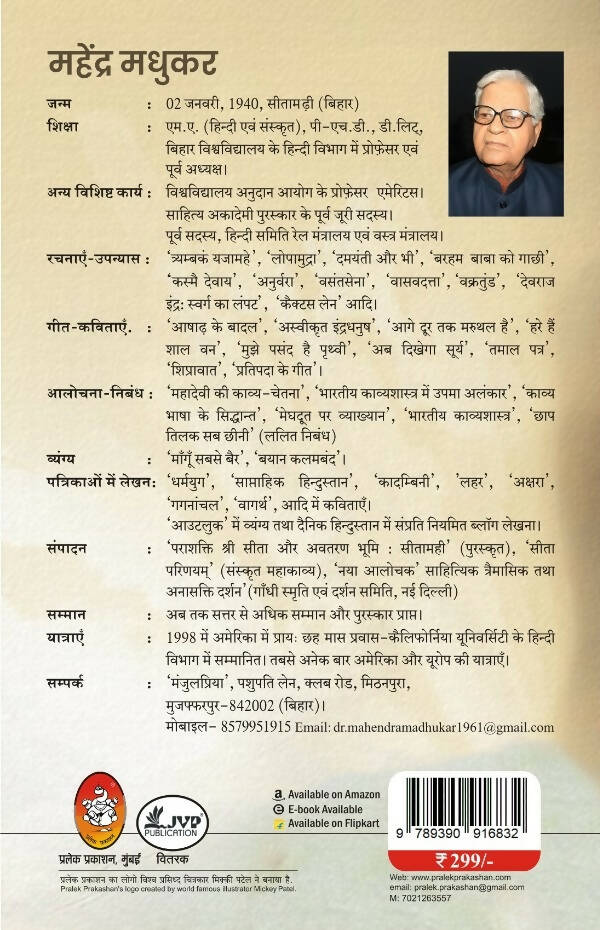 महेंद्र मधुकर
जन्म : 02 जनवरी, 1940, सीतामढ़ी (बिहार)
शिक्षा : एम.ए. (हिन्दी एवं संस्कृत), पी-एच.डी., डी.लिट्,
बिहार विश्वविद्यालय के हिन्दी विभाग में प्रोफ़ेसर एवं
पूर्व अध्यक्ष।
अन्य विशिष्ट कार्य : विश्वविद्यालय अनुदान आयोग के प्रोफ़ेसर एमेरिटस।
साहित्य अकादेमी पुरस्कार के पूर्व जूरी सदस्य।
पूर्व सदस्य, हिन्दी समिति रेल मंत्रालय एवं वस्त्र मंत्रालय।
रचनाएँ-उपन्यास : ‘त्र्यम्बकं यजामहे’, ‘लोपामुद्रा’, ‘दमयंती और भी’, ‘बरहम बाबा को गाछी’,
‘कस्मै देवाय’, ‘अनुर्वरा’, ‘वसंतसेना’, ‘वासवदत्ता’, ‘वक्रतुंड’, ‘देवराज
इंद्र: स्वर्ग का लंपट’, ‘कैक्टस लेन’ आदि।
गीत-कविताएँ. : ‘आषाढ़ के बादल’, ‘अस्वीकृत इंद्रधनुष’, ‘आगे दूर तक मरुथल है’, ‘हरे हैं
शाल वन’, ‘मुझे पसंद है पृथ्वी’, ‘अब दिखेगा सूर्य’, ‘तमाल पत्र’,
‘शिप्रावात’, ‘प्रतिपदा के गीत’।
आलोचना-निबंध : ‘महादेवी की काव्य-चेतना’, ‘भारतीय काव्यशास्त्र में उपमा अलंकार’, ‘काव्य
भाषा के सिद्धान्त’, ‘मेघदूत पर व्याख्यान’, ‘भारतीय काव्यशास्त्र’, ‘छाप
तिलक सब छीनी’ (ललित निबंध)
व्यंग्य : ‘माँगूँ सबसे बैर’, ‘बयान कलमबंद’।
पत्रिकाओं में लेखन: ‘धर्मयुग’, ‘सामाहिक हिन्दुस्तान’, ‘कादम्बिनी’, ‘लहर’, ‘अक्षरा’,
‘गगनांचल’, ‘वागर्थ’, आदि में कविताएँ।
‘आउटलुक’ में व्यंग्य तथा दैनिक हिन्दुस्तान में संप्रति नियमित ब्लॉग लेखना।
संपादन : ‘पराशक्ति श्री सीता और अवतरण भूमि : सीतामही’ (पुरस्कृत), ‘सीता
परिणयम्’ (संस्कृत महाकाव्य), ‘नया आलोचक’ साहित्यिक त्रैमासिक तथा
अनासक्ति दर्शन’(गाँधी स्मृति एवं दर्शन समिति, नई दिल्ली)
सम्मान : अब तक सत्तर से अधिक सम्मान और पुरस्कार प्राप्त।
यात्राएँ : 1998 में अमेरिका में प्रायः छह मास प्रवास-कैलिफोर्निया यूनिवर्सिटी के हिन्दी
विभाग में सम्मानित। तबसे अनेक बार अमेरिका और यूरोप की यात्राएँ।
सम्पर्क : ‘मंजुलप्रिया’, पशुपति लेन, क्लब रोड, मिठनपुरा,
मुजफ्फरपुर-842002 (बिहार)।
मोबाइल- 8579951915 Email: dr.mahendramadhukar1961@gmail.com
प्रलेक प्रकाशन
JVP
PUBLICATION
प्रलेक प्रकाशन, मुंबई वितरक
Available on Amazon
E-book Available
Available on Flipkart
9 789390 916832
₹ 299/-
प्रलेक प्रकाशन का लोगो विश्व प्रसिध्द चित्रकार मिक्की पटेल ने बनाया है.
Pralek Prakashan's logo created by world famous illustrator Mickey Patel.
Web: www.pralekprakashan.com
email: pralek.prakashan@gmail.com
M: 7021263557